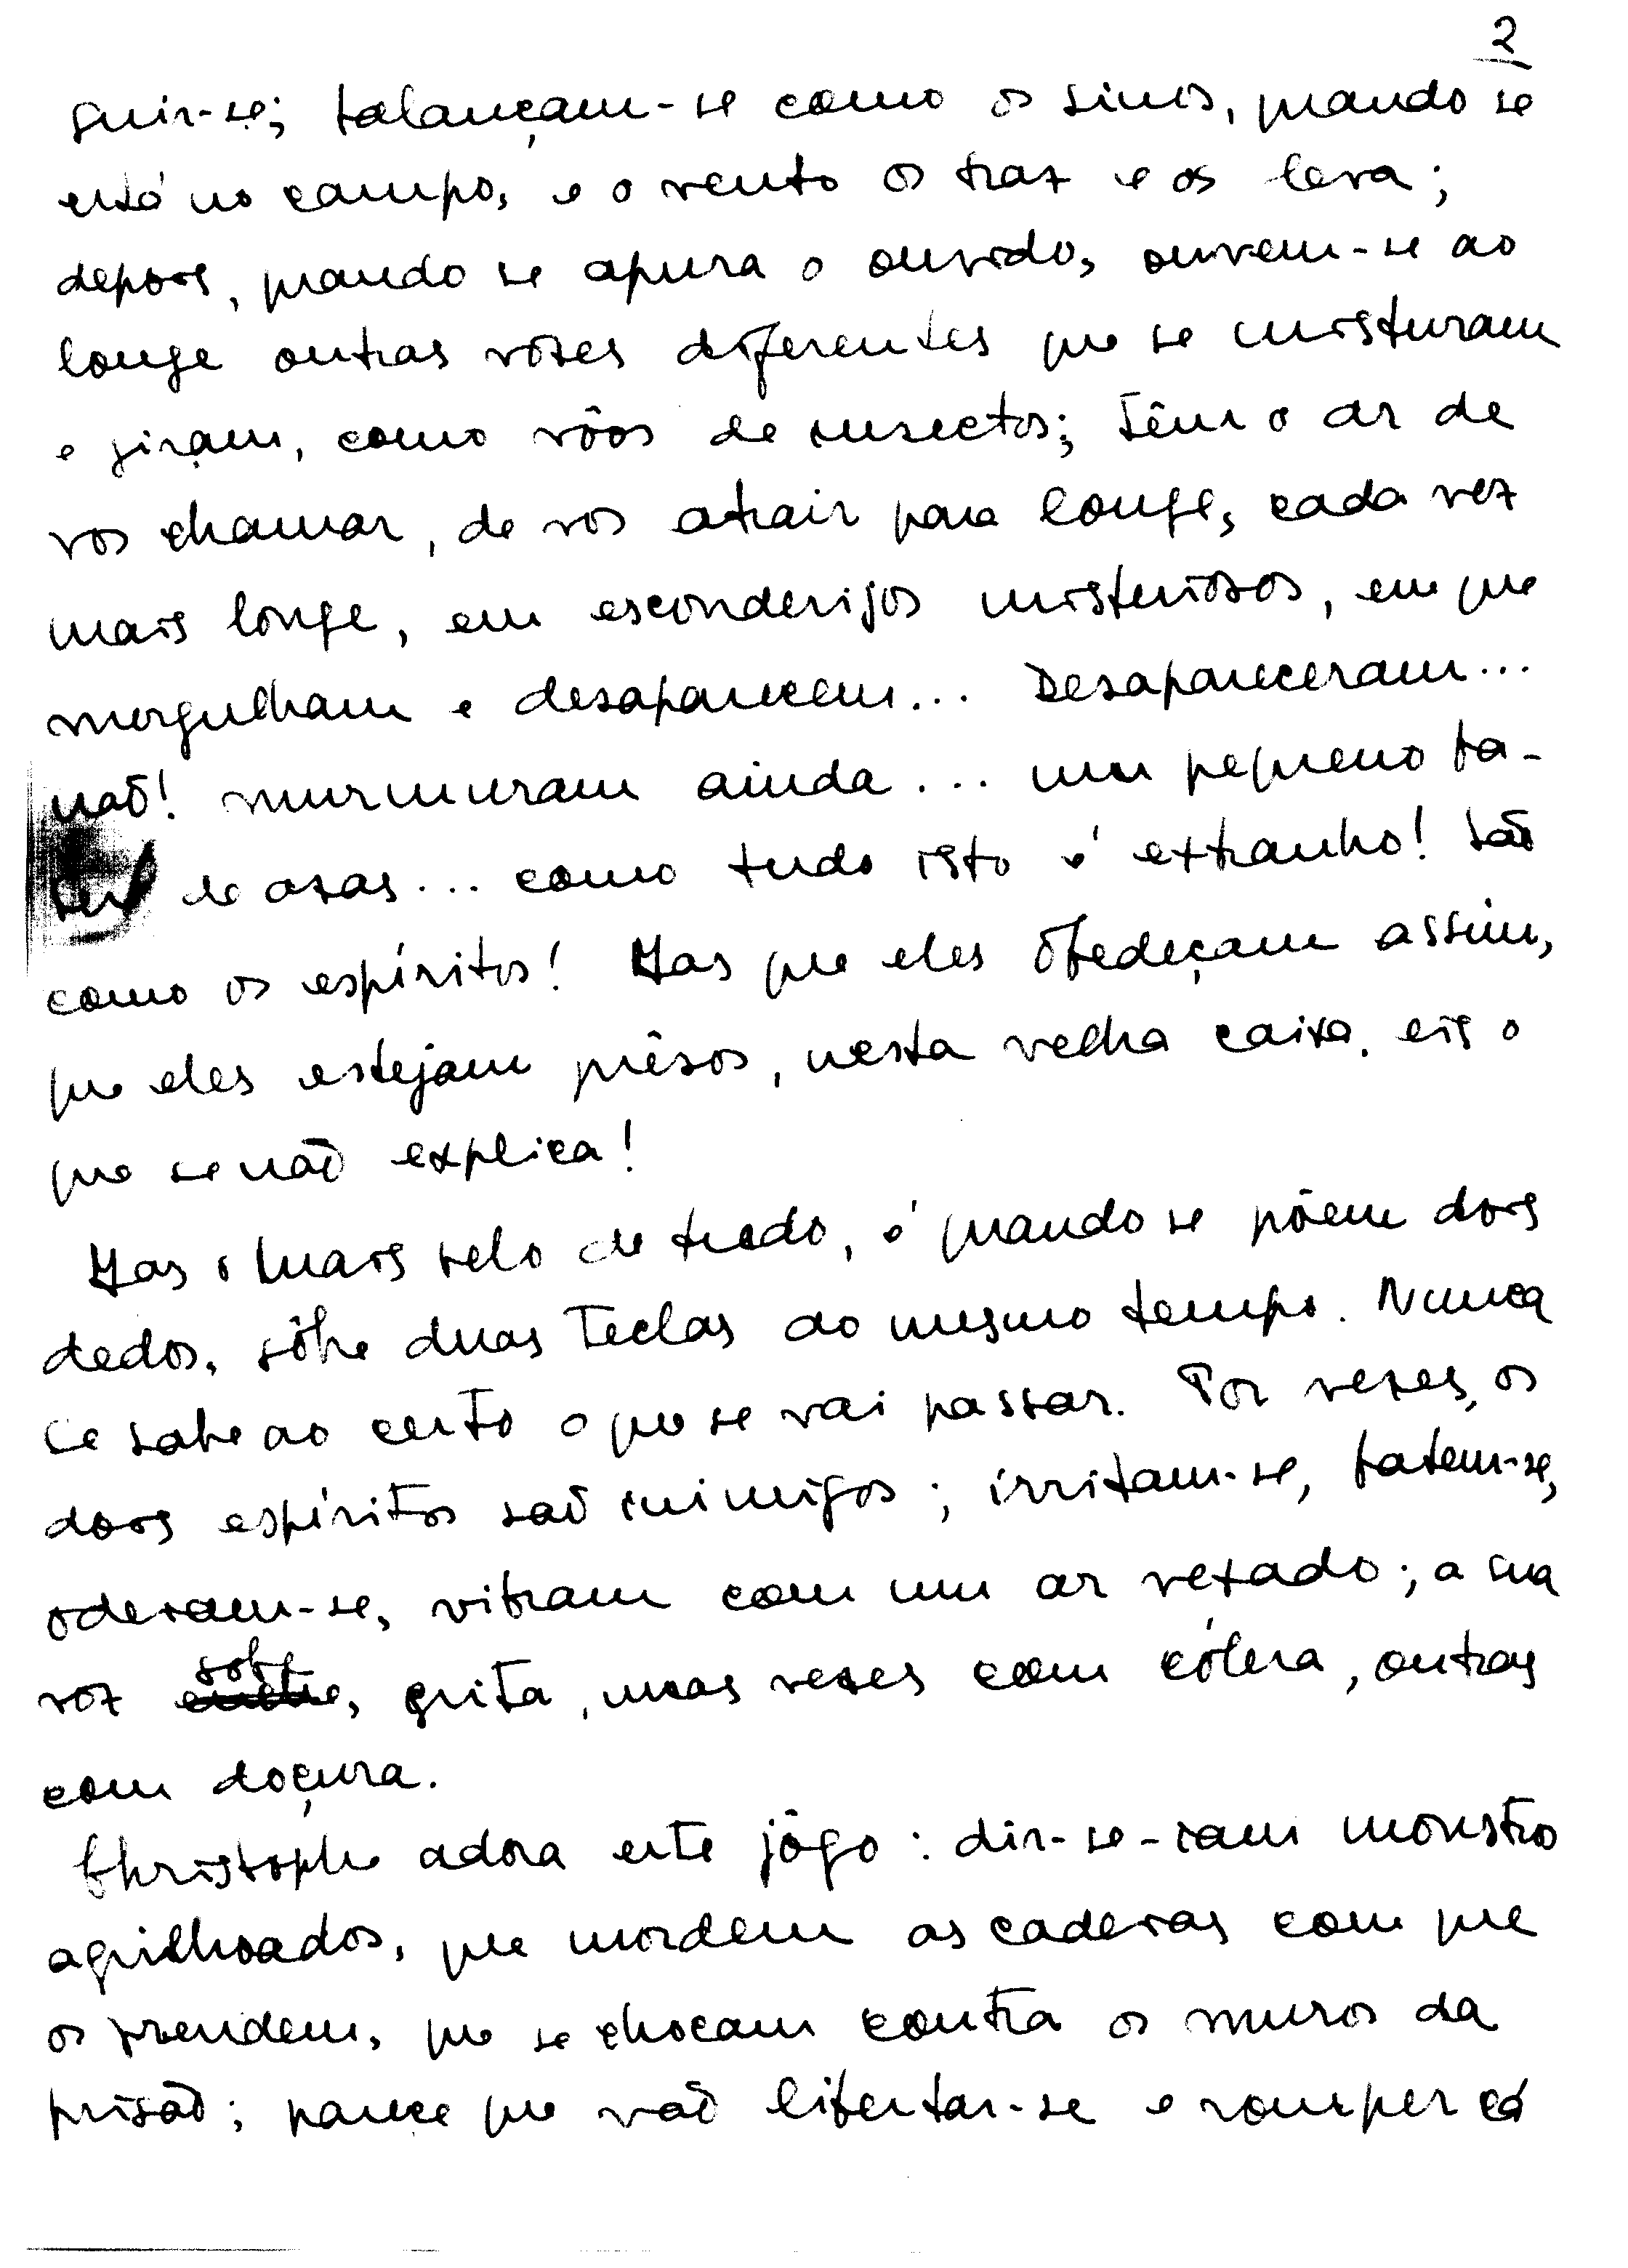 2
guir-se; balançam-se como os sinos, quando se
está no campo, e o vento os traz e os leva;
depois, quando se apura o ouvido, ouvem-se ao
longe outras vozes diferentes que se misturam
e giram, como vôos de insectos; têm o ar de
vos chamar, de vos atrair para longe, cada vez
mais longe, em esconderijos misteriosos, em que
mergulham e desaparecem... Desapareceram...
não! murmuram ainda... um pequeno ba-
ter de asas... como tudo isto é extranho! São
como os espíritos! Mas que eles obedeçam assim,
que eles estejam prêsos, nesta velha caixa, eis o
que se não explica!
Mas o mais belo de tudo, é quando se põem dois
dedos, sôbre duas teclas ao mesmo tempo. Nunca
se sabe ao certo o que se vai passar. Por vezes, os
dois espíritos são inimigos; irritam-se, batem-se,
odeiam-se, vibram com um ar vexado; a sua
voz sobe, grita, umas vezes com cólera, outras
com doçura.
Christophe adora este jôgo: dir-se-iam monstros
agrilhoados, que mordem as cadeias com que
os prendem, que se chocam contra os muros da
prisão; parece que vão libertar-se e romper cá